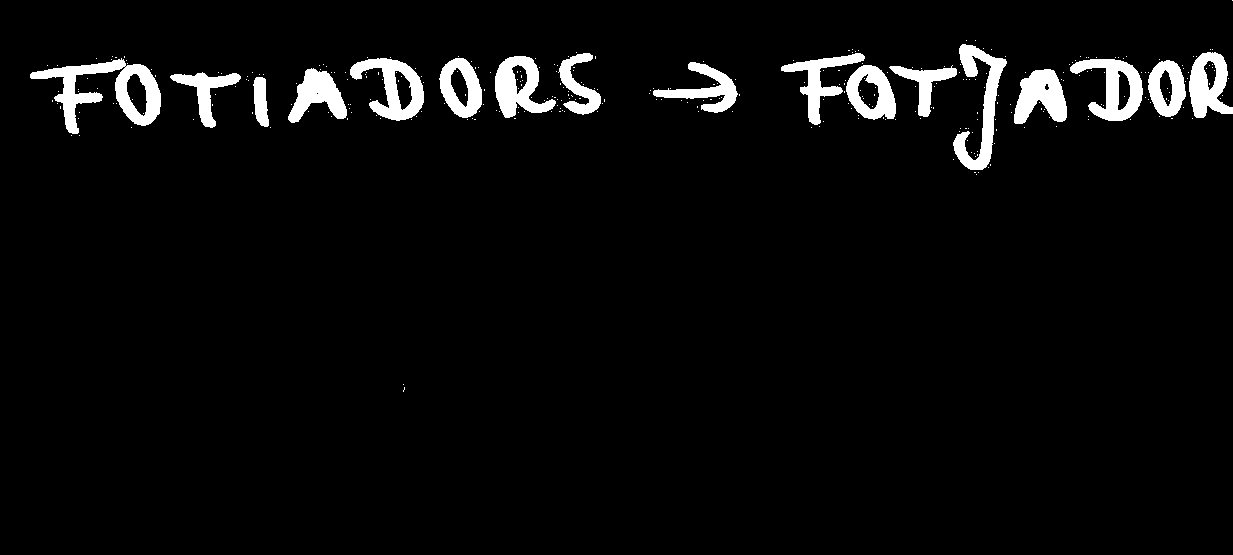 FOTIADORS → FOTJADOR